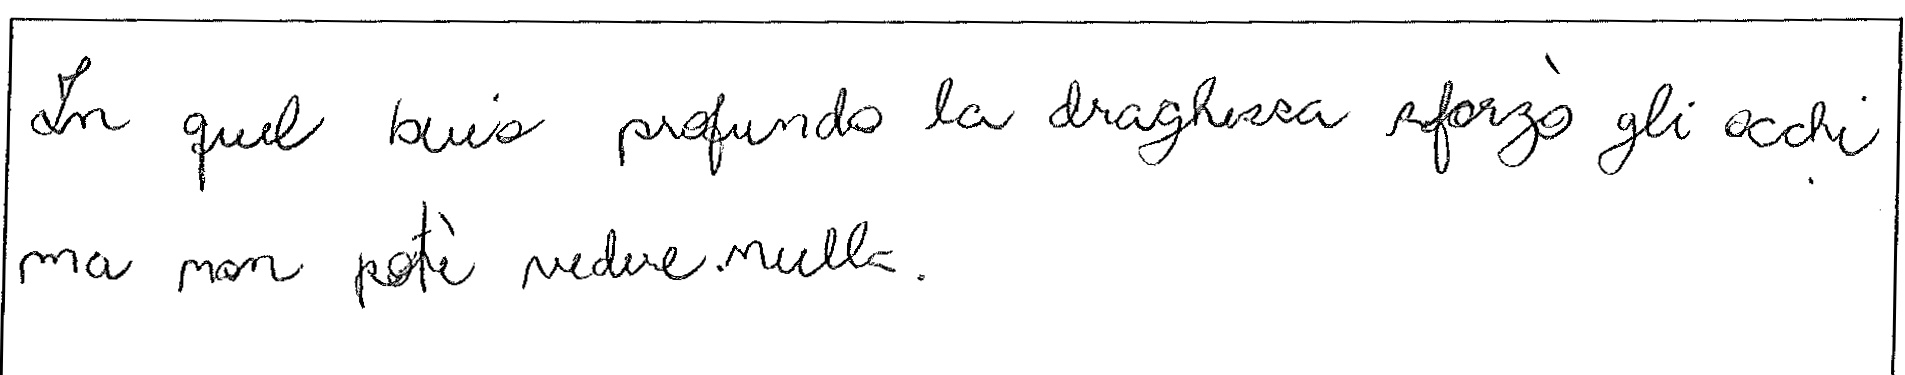 In quel buio profundo la draghessa sforzò gli occhi
ma non potè vedere nulla.